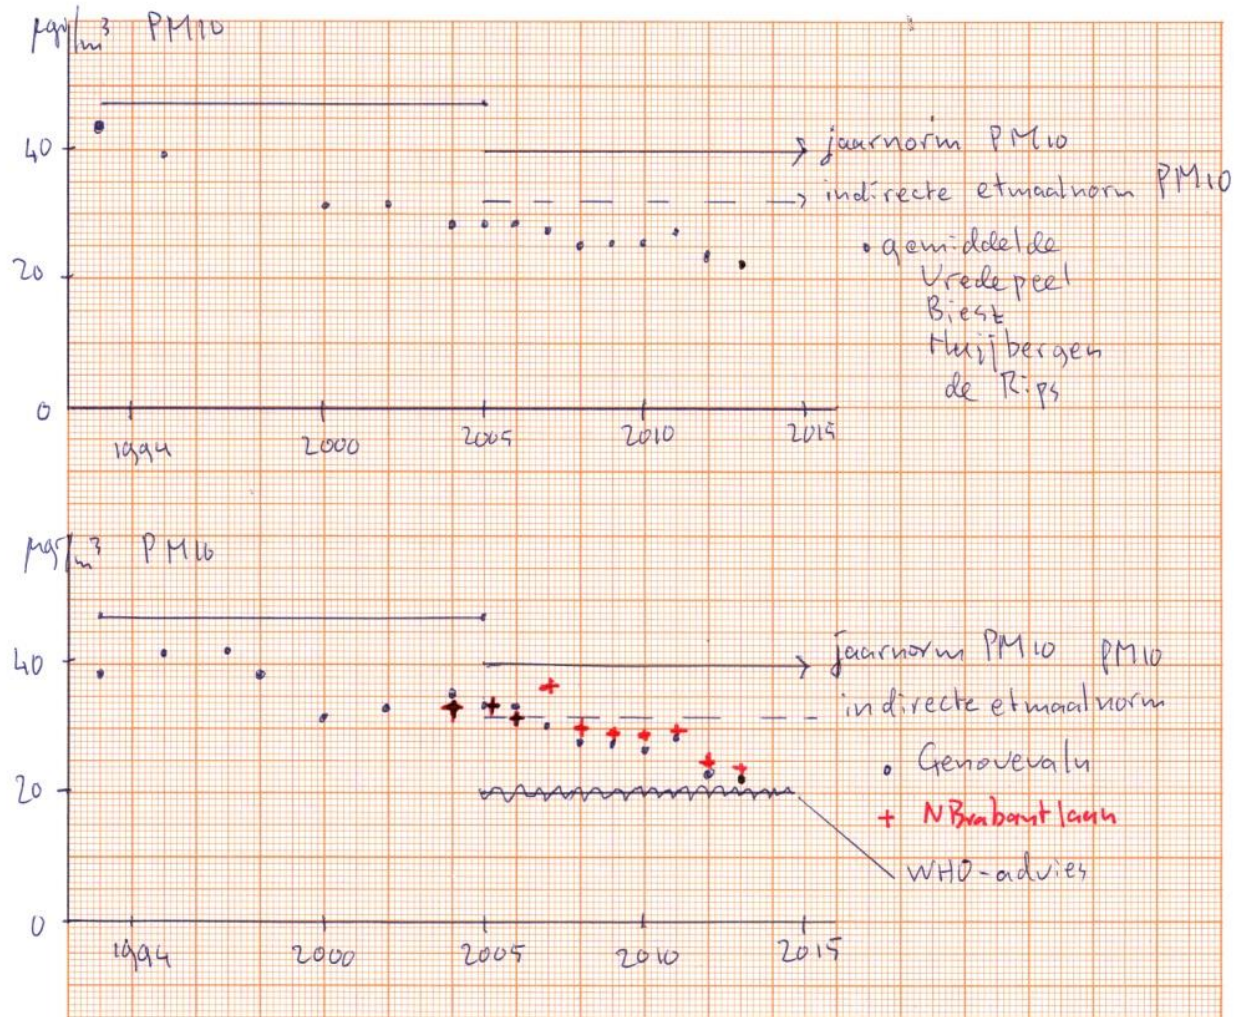 µgr/m³ PM10
40
20
0
1994 2000 2005 2010 2015
jaarnorm PM10
indirecte etmaalnorm PM10
• gemiddelde
Vredepeel
Biest
Huijbergen
de Rips
µgr/m³ PM10
40
20
0
1994 2000 2005 2010 2015
jaarnorm PM10 PM10
indirecte etmaalnorm
• Genovevaln
+ NBrabantlaan
WHO-advies